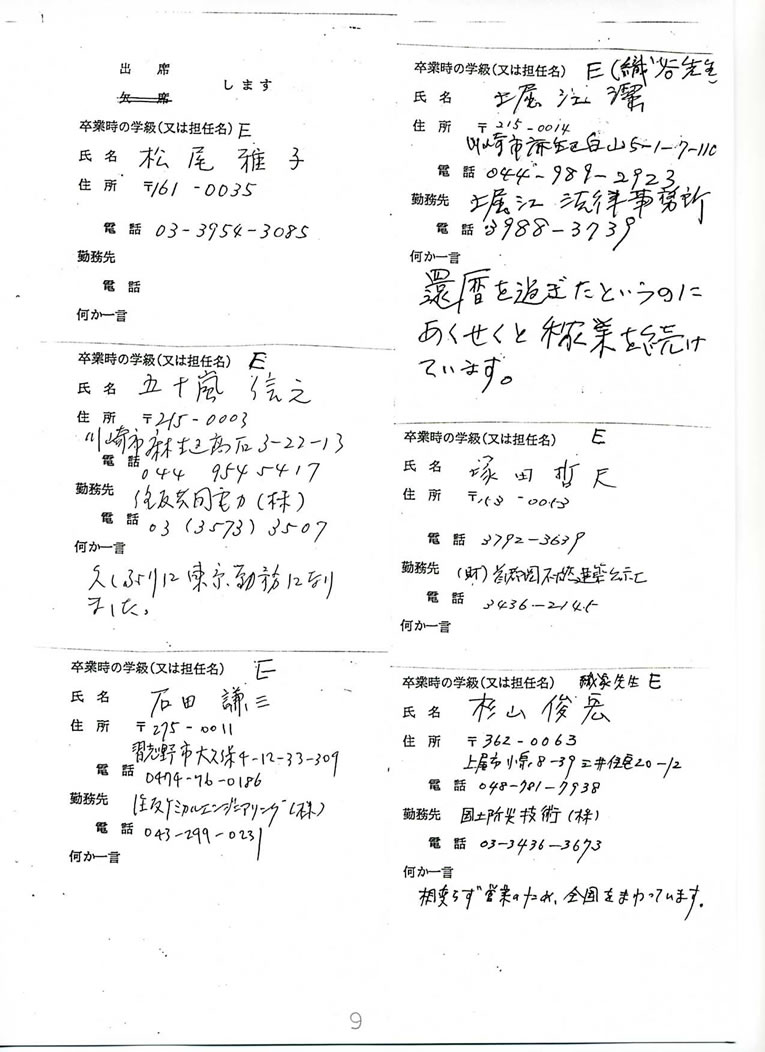 出席
欠席
します
卒業時の学級(又は担任名) E
氏名 松尾雅子
住所 〒161-0035
電話 03-3954-3085
勤務先
電話
何か一言
卒業時の学級(又は担任名) E
氏名 五十嵐信之
住所 〒215-0003
川崎市麻生区高石3-22-13
電話 044 954 5417
勤務先 住友共同電力(株)
電話 03(3573)3507
何か一言
久しぶりに東京勤務になり
ました。
卒業時の学級(又は担任名) E
氏名 石田謙三
住所 〒275-0011
習志野市大久保4-12-33-309
電話 0474-76-0186
勤務先 住友ケミカルエンジニアリング(株)
電話 043-299-0231
何か一言
卒業時の学級(又は担任名) E(織谷先生)
氏名 土屋江 潔
住所 〒215-0014
川崎市麻生区白山5-1-7-110
電話 044-989-2923
勤務先 土屋江 法律事務所
電話 3988-3739
何か一言
還暦を過ぎたというのに
あくせくと稼業を続け
ています。
卒業時の学級(又は担任名) E
氏名 塚田哲
住所 〒153-0053
電話 3792-3639
勤務先 (財)
電話 3436-2145
何か一言
卒業時の学級(又は担任名) 先生 E
氏名 杉山俊宏
住所 〒362-0063
上尾市小泉8-39三井住宅20-12
電話 048-781-7938
勤務先 国土防災技術(株)
電話 03-3436-3673
何か一言
相変らず営業のため、全国をまわっています。
9